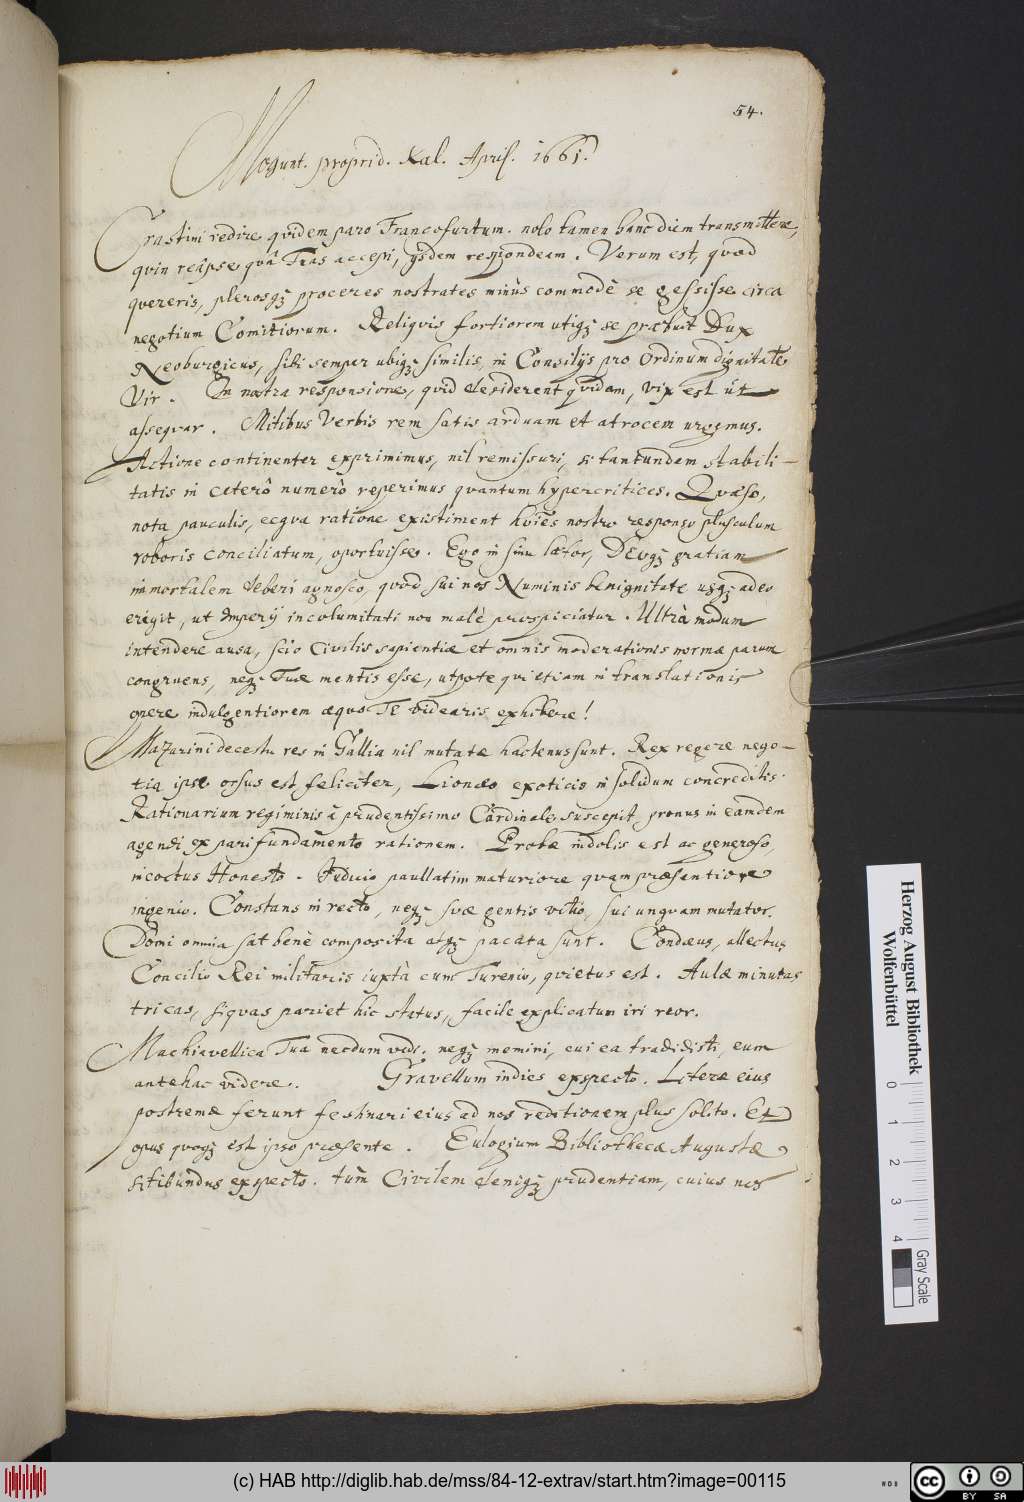 54.
Mogunt. proprid. Kal. April. 1661.
Crastini redire quidem paro Francofurtum. nolo tamen hanc diem transmittere,
quin reâpse, quâ Tuas accepi, ijsdem respondeam. Verum est, quod
quereris, plerosqz proceres nostrates minùs commodè se gessisse circa
negotium Comitiorum. Reliquis fortiorem utiqz se præbuit Dux
Neoburgicus, sibi semper ubiqz similis, in Consilijs pro Ordinum dignitate
Vir. In nostra responsione, quid desiderent quidam, vix est ut
assequar. Mitibus Verbis rem satis arduam et atrocem urgemus.
Actione continenter exprimimus, nil remissuri, si tantundem stabili-
tatis in cæterô numerô reperimus quantum hypercritices. Quæso,
nota pauculis, ecqua ratione existiment huic nostro responso plusculum
roboris conciliatum, oportuisse. Ego in sinu lætor, DEoqz gratiam
immortalem deberi agnosco, quod sui nos Numinis benignitate usqz adeo
erigit, ut Imperij incolumitati non malè prospiciatur. Ultrà modum
intendere ausa, scio Civilis sapientiæ et omnis moderationis normæ parum
congruens, neqz Tuæ mentis esse, utpote qui etiam in translationis
onere indulgentiorem æquo TE videaris exhibere!
Mazarini decessu res in Gallia nil mutatæ hactenus sunt. Rex regere nego-
tia ipse orsus est feliciter, Lionæo exoticis in solidum concreditis.
Rationarium regiminis à prudentissimo Cardinale suscepit, pronus in eamdem
agendi ex pari fundamento rationem. Probæ indolis est ac generoso,
incoctus Honesto. Iudicio paullatim maturiore quam præsentiore
ingenio. Constans in recto, neqz suæ gentis vitio, sui unquam mutator.
Domi omnia sat benè composita atqz pacata sunt. Condæus, allectus
Concilio Rei militaris iuxtà cum Turenio, quietus est. Aulæ minutas
tricas, siquas pariet hic status, facile explicatum iri reor.
Machiavellica Tua necdum vidi. neqz memini, cui ea tradidisti, eum
antehac videre. Gravellum indies exspecto. Literæ eius
postremæ ferunt festinari eius ad nos reditionem plus solito. Et
opus quoqz est ipso præsente. Eulogium Bibliothecæ Augustæ
sitibundus expecto. tùm Civilem deniqz prudentiam, cuius nos
Herzog August Bibliothek
Wolfenbüttel
0 1 2 3 4
Gray Scale
(c) HAB http://diglib.hab.de/mss/84-12-extrav/start.htm?image=00115
WDB
cc
BY SA